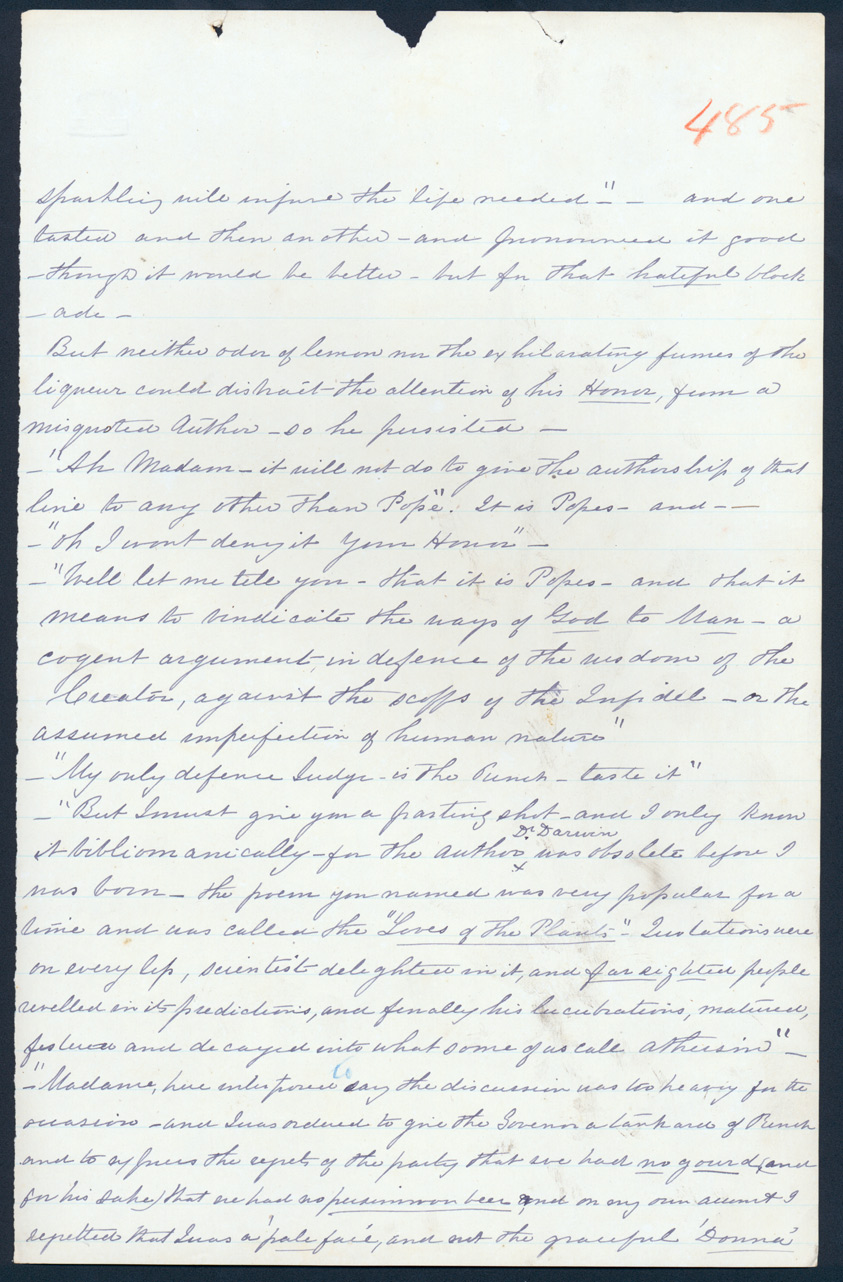 485
sparkling nile infuse the life needed" – – and one
tasted and then another – and pronounced it good
– though it would be better – but for that hateful block
– ade –
But neither odor of lemon nor the exhilarating fumes of the
liqueur could distrait the attention of his Honor, from a
misquoted Author – so he persisted –
– "Ah Madam – it will not do to give the authorship of that
line to any other than Pope". It is Popes – and – –
– "oh I wont deny it Your Honor" –
– "Well let me tell you – that it is Popes – and that it
means to vindicate the ways of God to Man – a
cogent argument, in defence of the wisdom of the
Creator, against the scoffs of the Infidel – or the
assumed imperfection of human nature"
– "My only defence Judge – is the Punch – taste it"
– "But I must give you a parting shot – and I only know
Dr Darwin
it bibliomanically – for the author x was obsolete before I
was born – the poem you named was very popular for a
time and was called the "Loves of the Plants" – Quotations were
on every lip, scientists deleghted in it, and far sighted people
revelled in its predictions, and finally his lucubrations, matured,
festered and decayed into what some of us call atheism" –
– "Madame, here interposed say the discussion was too heavy for the
occasion – and I was ordered to give the Governor a tankard of Punch
and to express the regrets of the party that we had no gourd, (and
for his sake) that we had no persimmon beer and on my own account I
regretted that I was a 'pale face', and not the graceful 'Donna'